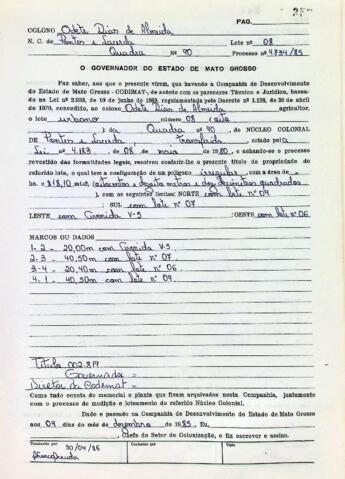 PAG.
COLONO Odete Dias de Almeida
N. C. de Pontes e Lacerda Lote nº 08
Quadra Nº 90 Processo nº 4734/85
O GOVERNADOR DO ESTADO DE MATO GROSSO
Faz saber, aos que o presente virem, que havendo a Companhia de Desenvolvimento
do Estado de Mato Grosso - CODEMAT-, de acordo com os pareceres Técnico e Jurídico, basea-
do na Lei nº de 19 de junho de regulamentada pelo Decreto nº 1.138, de 30 de abril
de 1970, concedido, ao colono Odete Dias de Almeida agricultor,
o lote urbano número 08 (oito
) da Quadra nº 90, DO NÚCLEO COLONIAL
DE Pontes e Lacerda criado pela
Lei nº 4.183, de 08 de maio de 1980, e achando-se o processo
revestido das formalidades legais, resolveu conferir-lhe o presente título de propriedade do
referido lote, o qual tem a configuração de um polígono irregular com a área de
ha. e 818,10 mts2, (oitocentos e dezoito metros e dez decímetros quadrados
), com os seguintes limites: NORTE com lote nº 09
; SUL com lote nº 07
LESTE com Avenida V-5 ;OESTE com lote nº 06
MARCOS OU DADOS
1-2 - 20,00m com Avenida V-5
2-3 - 40,50m com lote nº 07
3-4 - 20,40m com lote nº 06.
4-1 - 40,50m com lote nº 09.
Título 002.819
Governador =
Diretor da Codemat =
Como tudo consta do memorial e planta que ficam arquivados nesta Companhia, juntamente
com o processo de medição e loteamento do referido Núcleo Colonial.
Dado e passado na Companhia de Desenvolvimento do Estado de Mato Grosso
aos 04 dias do mês de dezembro de 1985, Eu,
Chefe do Setor de Colonização, o fiz escrever e assino.
Transcrito por 30/04/86
Conferido por
Visto